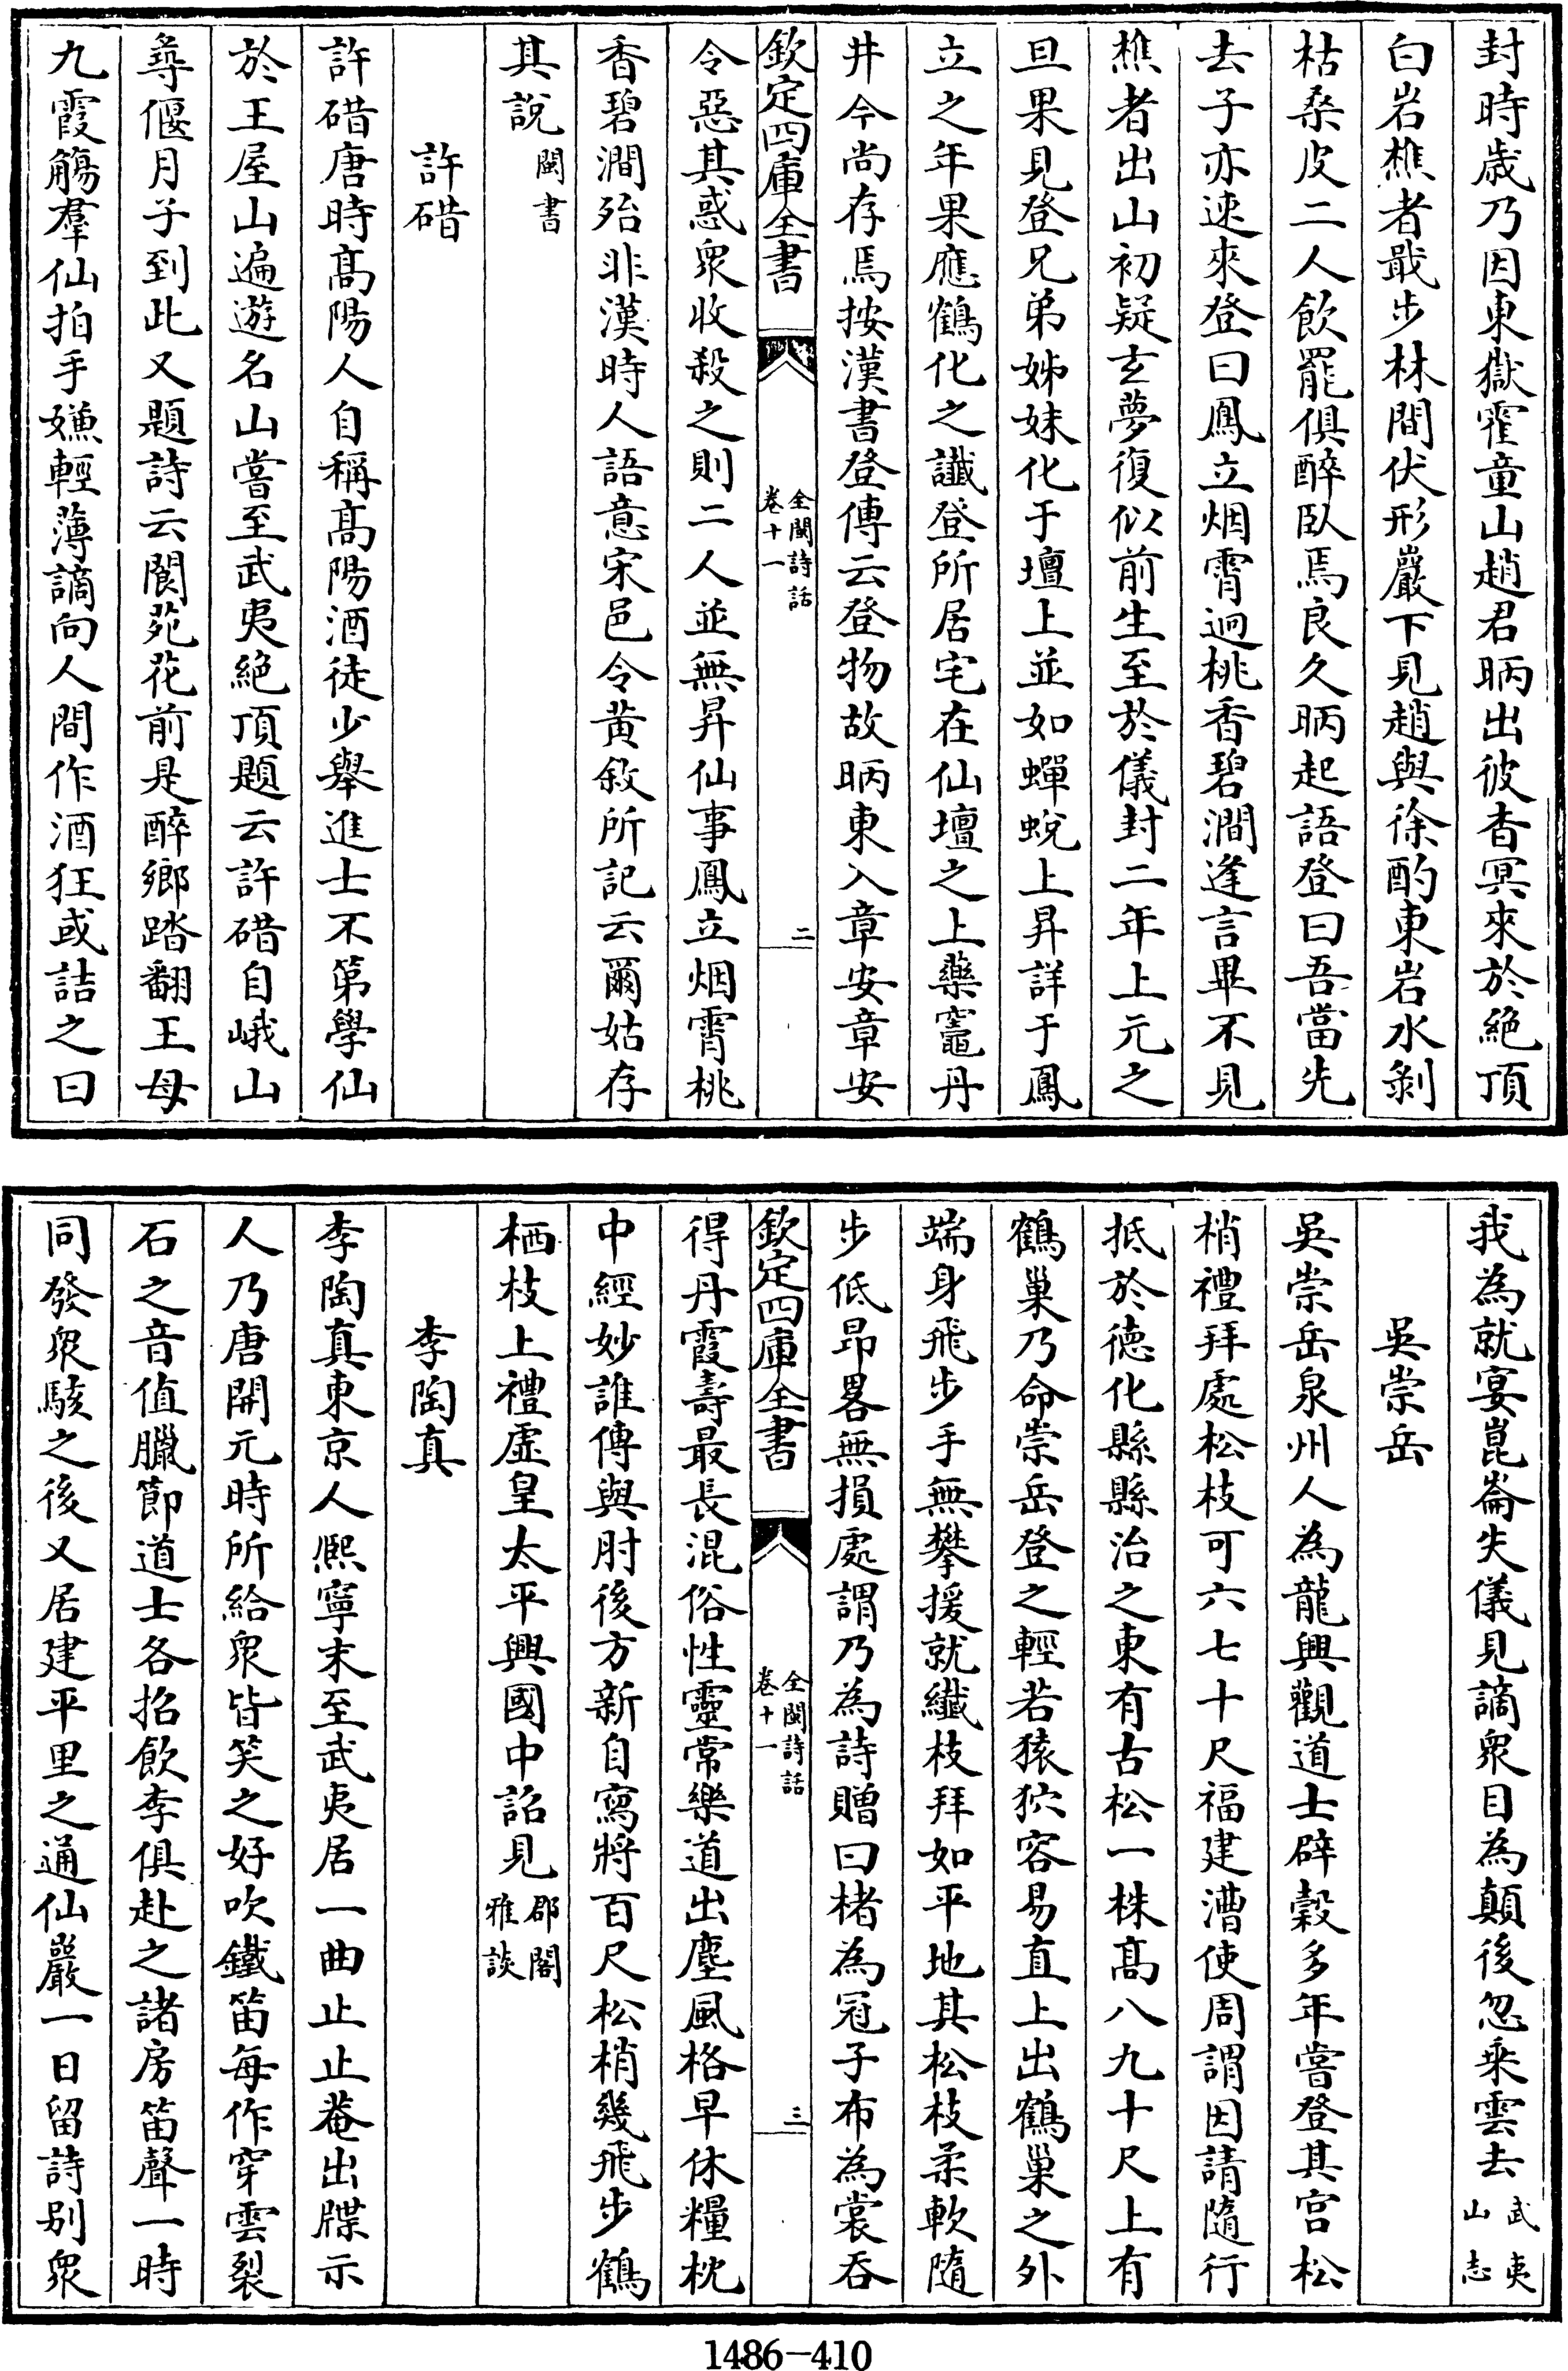 封時歲乃因東嶽霍童山趙君昞出彼杳冥來於絕頂
白岩樵者戢步林間伏形巖下見趙與徐酌東岩水剝
枯桑皮二人飲罷俱醉臥焉良久昞起語登曰吾當先
去子亦速來登曰鳳立烟霄迥桃香碧澗逢言畢不見
樵者出山初疑玄夢復似前生至於儀封二年上元之
旦果見登兄弟姊妹化于壇上並如蟬蛻上昇詳于鳳
立之年果應鶴化之讖登所居宅在仙壇之上藥竈丹
井今尚存焉按漢書登傳云登物故昞東入章安章安
欽定四庫全書
全閩詩話
卷十一
二
令惡其惑衆收殺之則二人並無昇仙事鳳立烟霄桃
香碧澗殆非漢時人語意宋邑令黃敘所記云爾姑存
其說閩書
許碏
許碏唐時髙陽人自稱髙陽酒徒少舉進士不第學仙
於王屋山遍遊名山嘗至武夷絕頂題云許碏自峨山
尋偃月子到此又題詩云閬苑花前是醉鄉踏翻王母
九霞觴羣仙拍手嫌輕薄謫向人間作酒狂或詰之曰
我為就宴崑崙失儀見謫衆目為顛後忽乘雲去武夷
山志
吳崇岳
吳崇岳泉州人為龍興觀道士辟穀多年嘗登其宮松
梢禮拜處松枝可六七十尺福建漕使周謂因請隨行
抵於德化縣縣治之東有古松一株髙八九十尺上有
鶴巢乃命崇岳登之輕若猿狖容易直上出鶴巢之外
端身飛步手無攀援就纖枝拜如平地其松枝柔軟隨
步低昂畧無損處謂乃為詩贈曰楮為冠子布為裳吞
欽定四庫全書
全閩詩話
卷十一
三
得丹霞壽最長混俗性靈常樂道出塵風格早休糧枕
中經妙誰傳與肘後方新自寫將百尺松梢幾飛步鶴
栖枝上禮虛皇太平興國中詔見郡閣
雅談
李陶真
李陶真東京人熙寧末至武夷居一曲止止菴出牒示
人乃唐開元時所給衆皆笑之好吹鐵笛每作穿雲裂
石之音值臘節道士各招飲李俱赴之諸房笛聲一時
同發衆駭之後又居建平里之通仙巖一日留詩別衆
1486-410